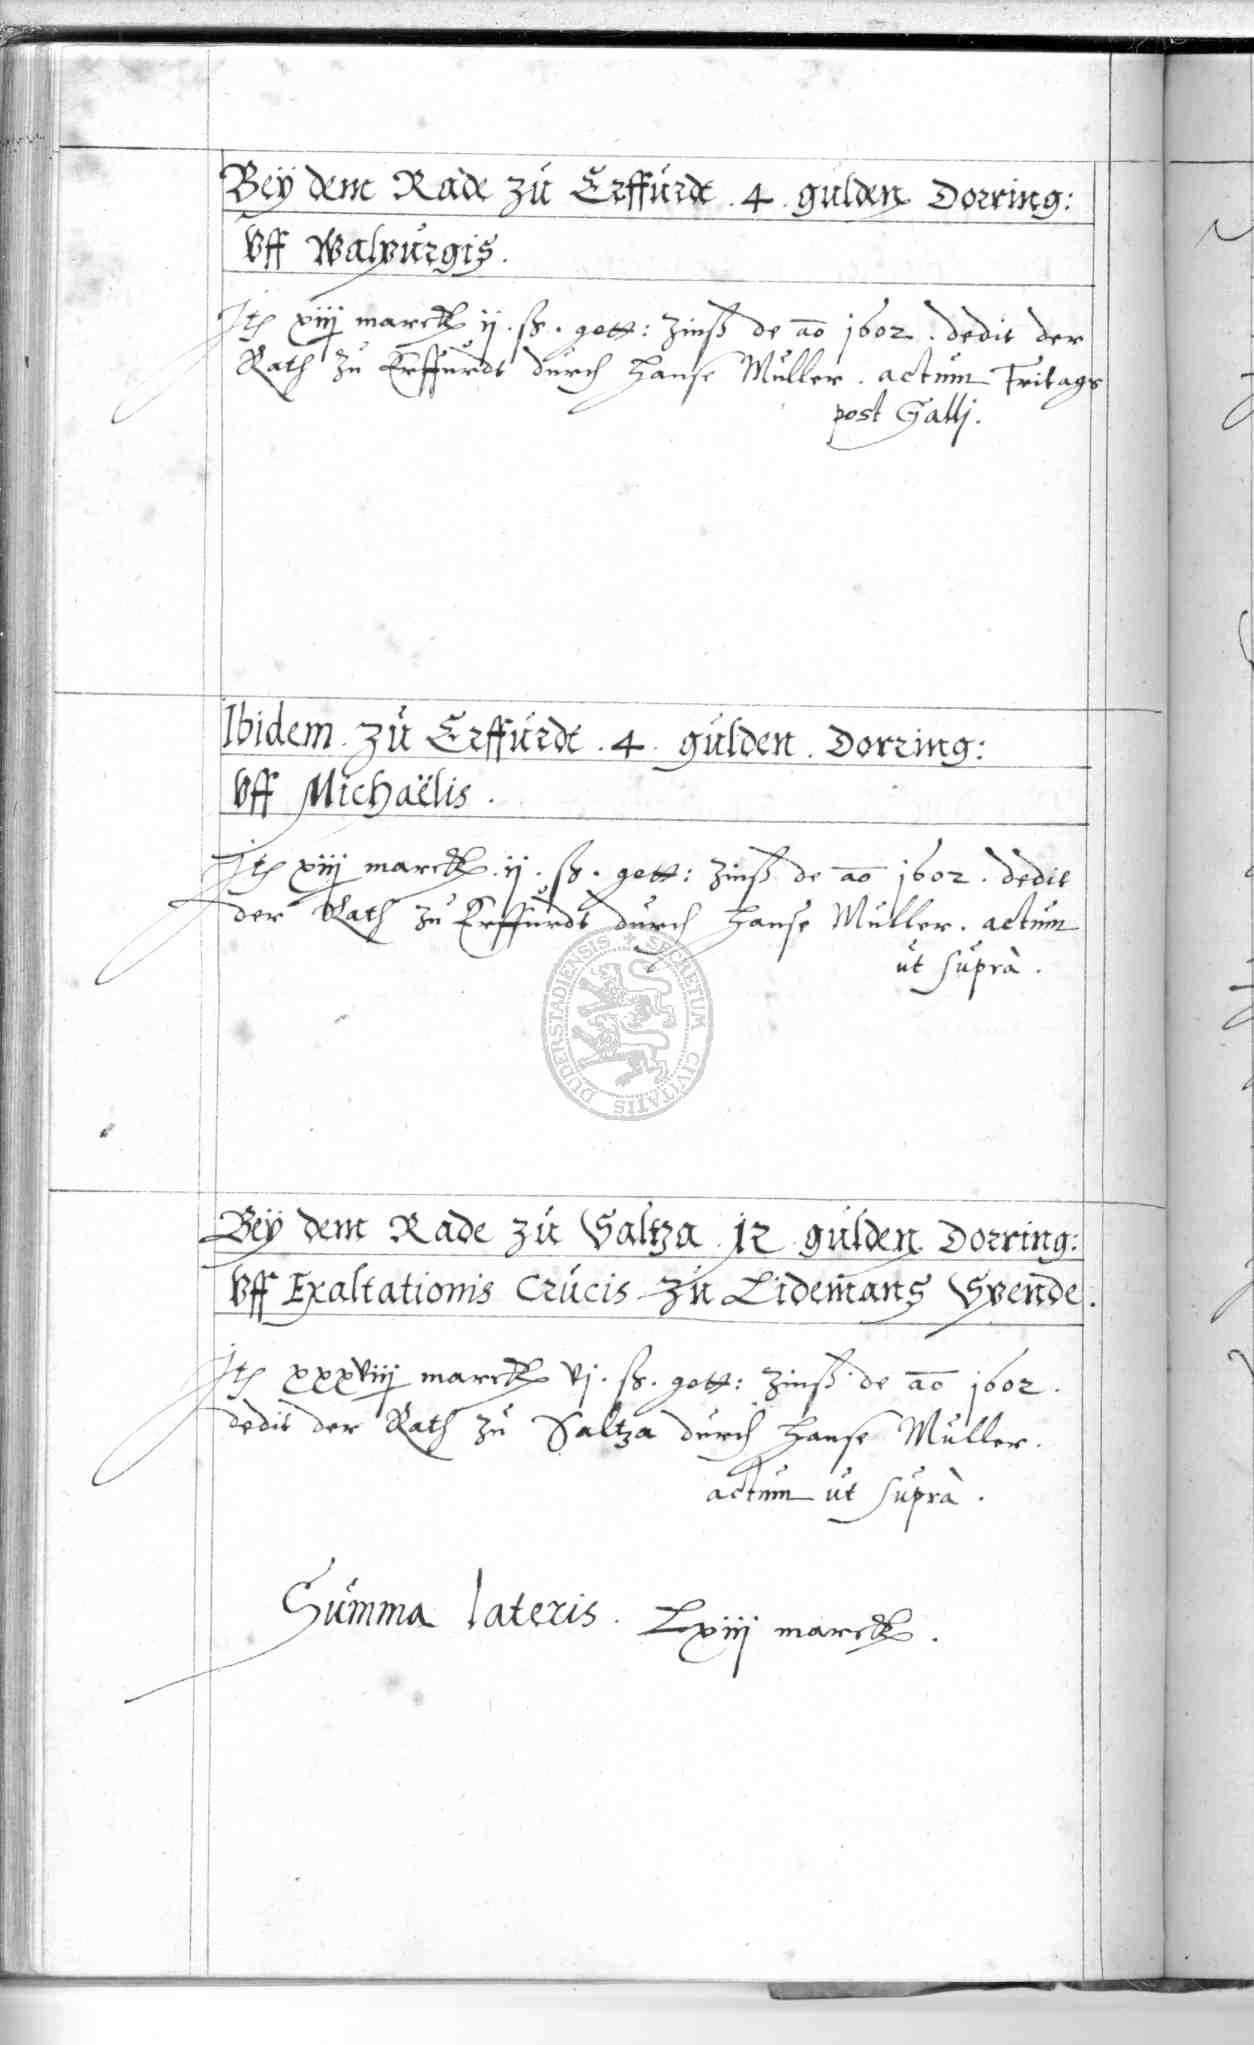 Beÿ dem Rade zú Erffúrdt . 4 . gulden Dorring:
Vff Walpúrgis .
Jtem xiij marck ij . ß . gott: Zinß de ao 1602 . dedit der
Rath zú Erffúrdt dúrch Hanse Múller . actúm Fritags
post Gallj .
Ibidem . zú Erffúrdt . 4 . gúlden . Dorring:
Vff Michaëlis .
Jtem xiij marck . ij . ß . gott: Zinß de ao 1602 . dedit
der Rath zú Erffúrdt dúrch Hanse Múller . actúm
út súprà .
SECRETUM CIVITATIS DUDERSTADIENSIS
Beÿ dem Rade zú Saltza . 12 . gúlden Dorring:
Vff Exaltationis Crúcis zú Lidemans Spende .
Jtem xxxviij marck vj . ß . gott: Zinß de ao 1602 .
dedit der Rath zú Saltza dúrch Hanse Múller .
actúm út súprà .
Súmma lateris . Lxiij marck .